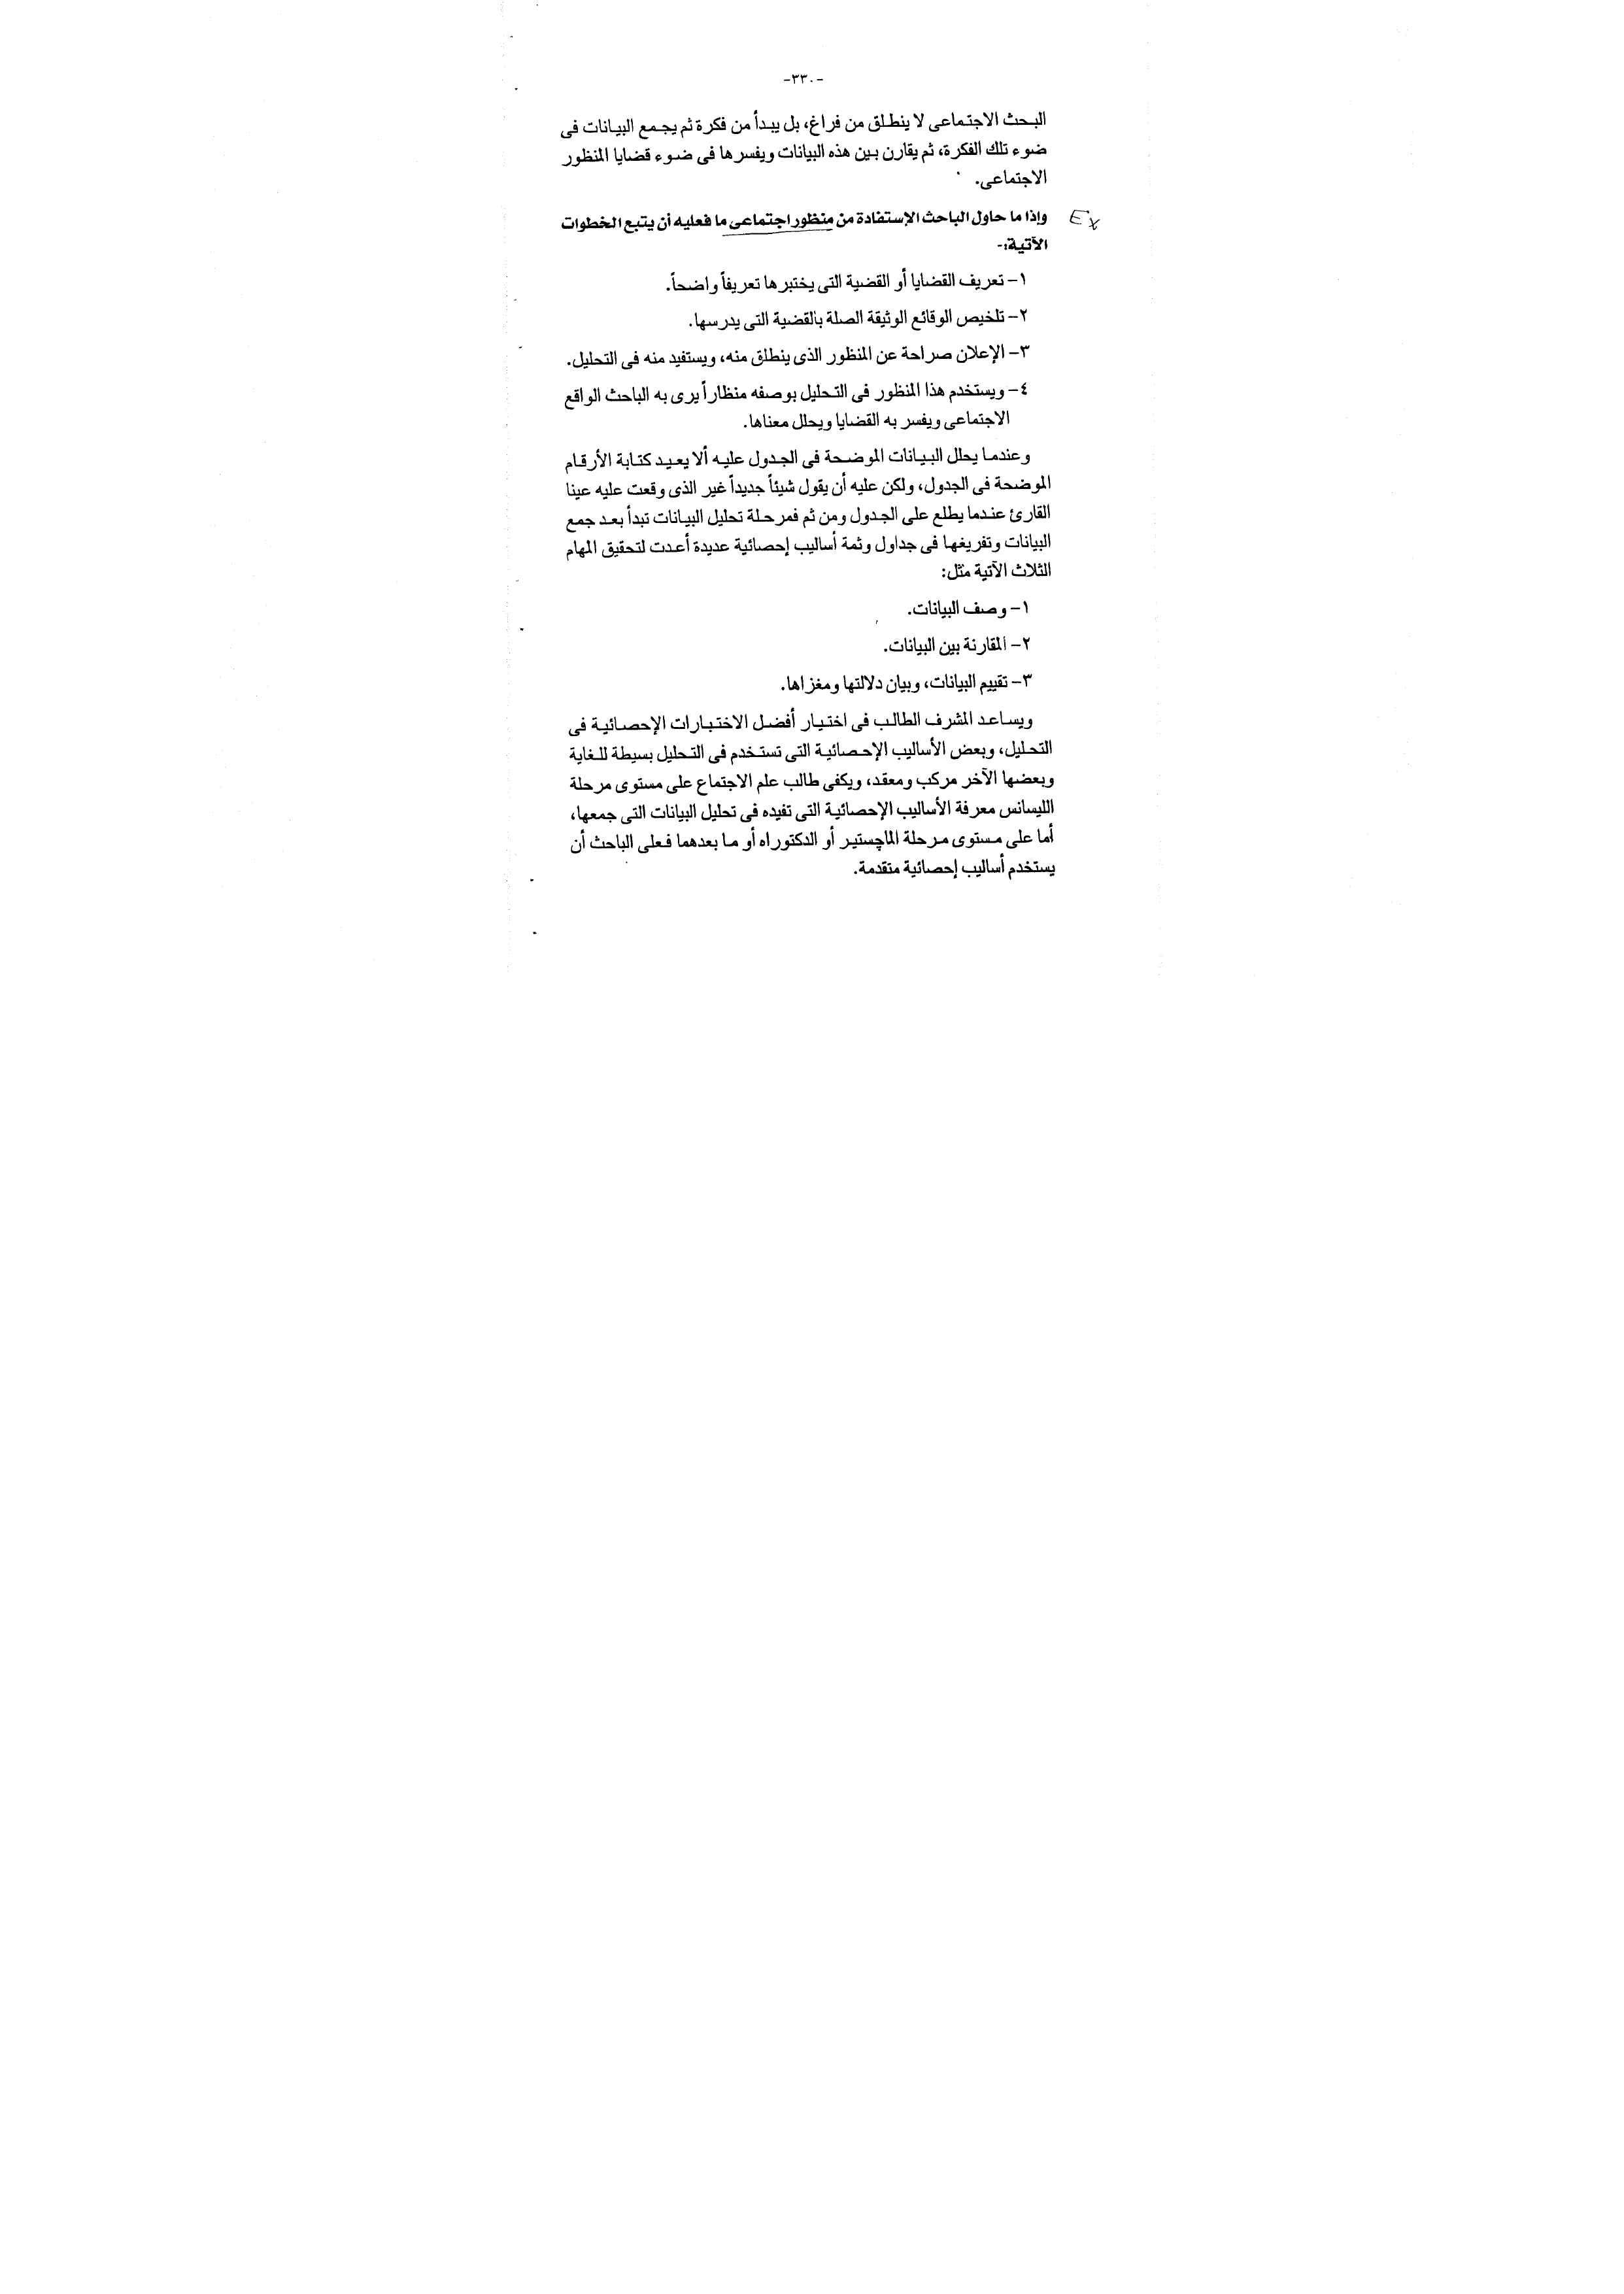 -٣٣٠-
البحث الاجتماعى لا ينطلق من فراغ، بل يبدأ من فكرة ثم يجمع البيانات فى
ضوء تلك الفكرة، ثم يقارن بين هذه البيانات ويفسرها فى ضوء قضايا المنظور
الاجتماعى.
Ex
وإذا ما حاول الباحث الإستفادة من منظور اجتماعى ما فعليه أن يتبع الخطوات
الآتية:-
١- تعريف القضايا أو القضية التى يختبرها تعريفاً واضحاً.
٢- تلخيص الوقائع الوثيقة الصلة بالقضية التى يدرسها.
٣- الإعلان صراحة عن المنظور الذى ينطلق منه، ويستفيد منه فى التحليل.
٤- ويستخدم هذا المنظور فى التحليل بوصفه منظاراً يرى به الباحث الواقع
الاجتماعى ويفسر به القضايا ويحلل معناها.
وعندما يحلل البيانات الموضحة فى الجدول عليه ألا يعيد كتابة الأرقام
الموضحة فى الجدول، ولكن عليه أن يقول شيئاً جديداً غير الذى وقعت عليه عينا
القارئ عندما يطلع على الجدول ومن ثم فمرحلة تحليل البيانات تبدأ بعد جمع
البيانات وتفريغها فى جداول وثمة أساليب إحصائية عديدة أعدت لتحقيق المهام
الثلاث الآتية مثل:
١- وصف البيانات.
٢- المقارنة بين البيانات.
٣- تقييم البيانات، وبيان دلالتها ومغزاها.
ويساعد المشرف الطالب فى اختيار أفضل الاختبارات الإحصائية فى
التحليل، وبعض الأساليب الإحصائية التى تستخدم فى التحليل بسيطة للغاية
وبعضها الآخر مركب ومعقد، ويكفى طالب علم الاجتماع على مستوى مرحلة
الليسانس معرفة الأساليب الإحصائية التى تفيده فى تحليل البيانات التى جمعها،
أما على مستوى مرحلة الماچستير أو الدكتوراه أو ما بعدهما فعلى الباحث أن
يستخدم أساليب إحصائية متقدمة.